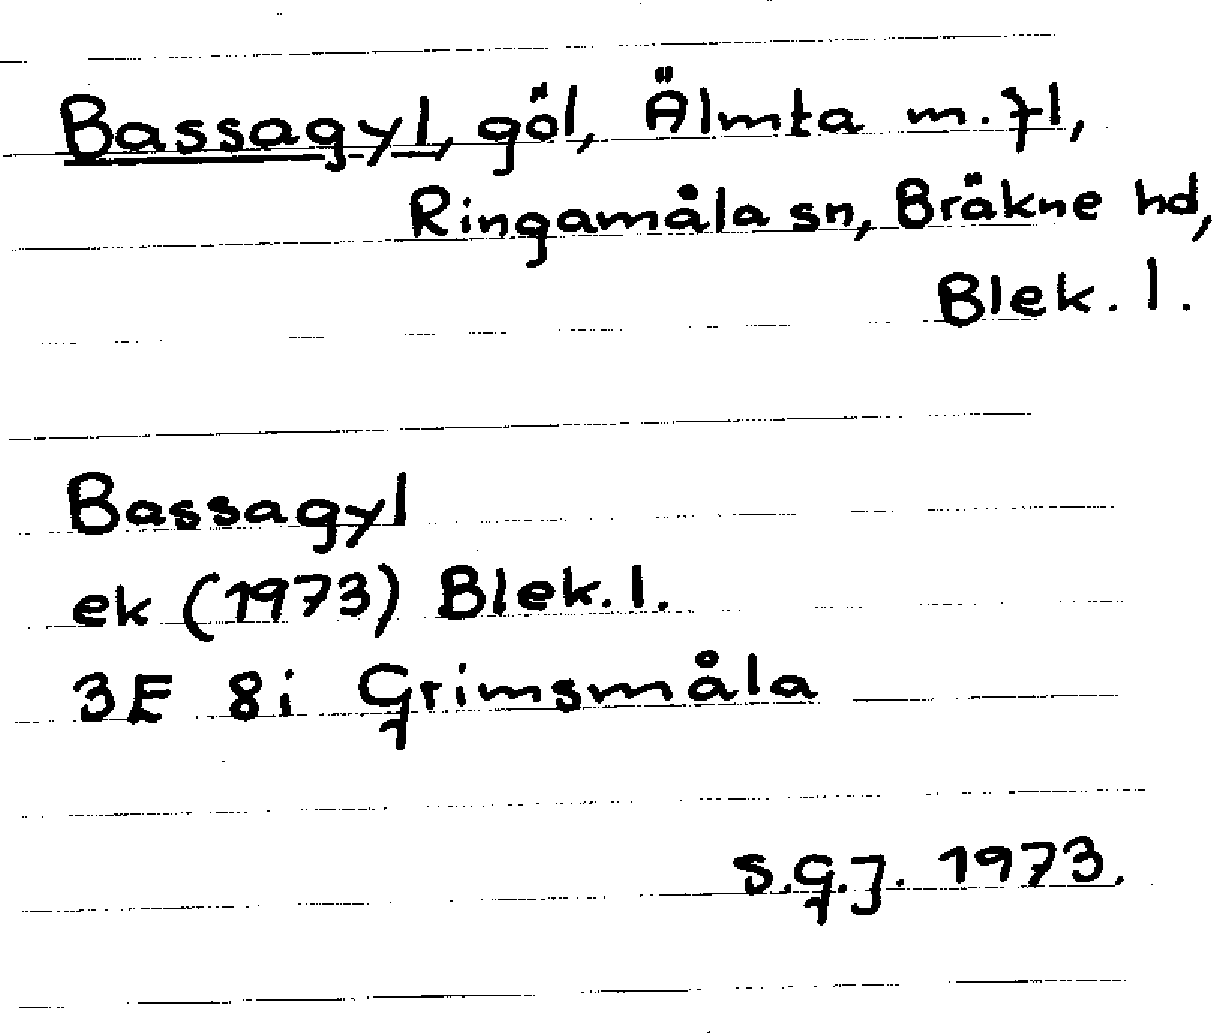 Bassagyl, göl, Älmta m.fl,
Ringamåla sn, Bräkne hd,
Blek. l.
Bassagyl
ek (1973) Blek. l.
3E 8i Grimsmåla
S.G.J. 1973.